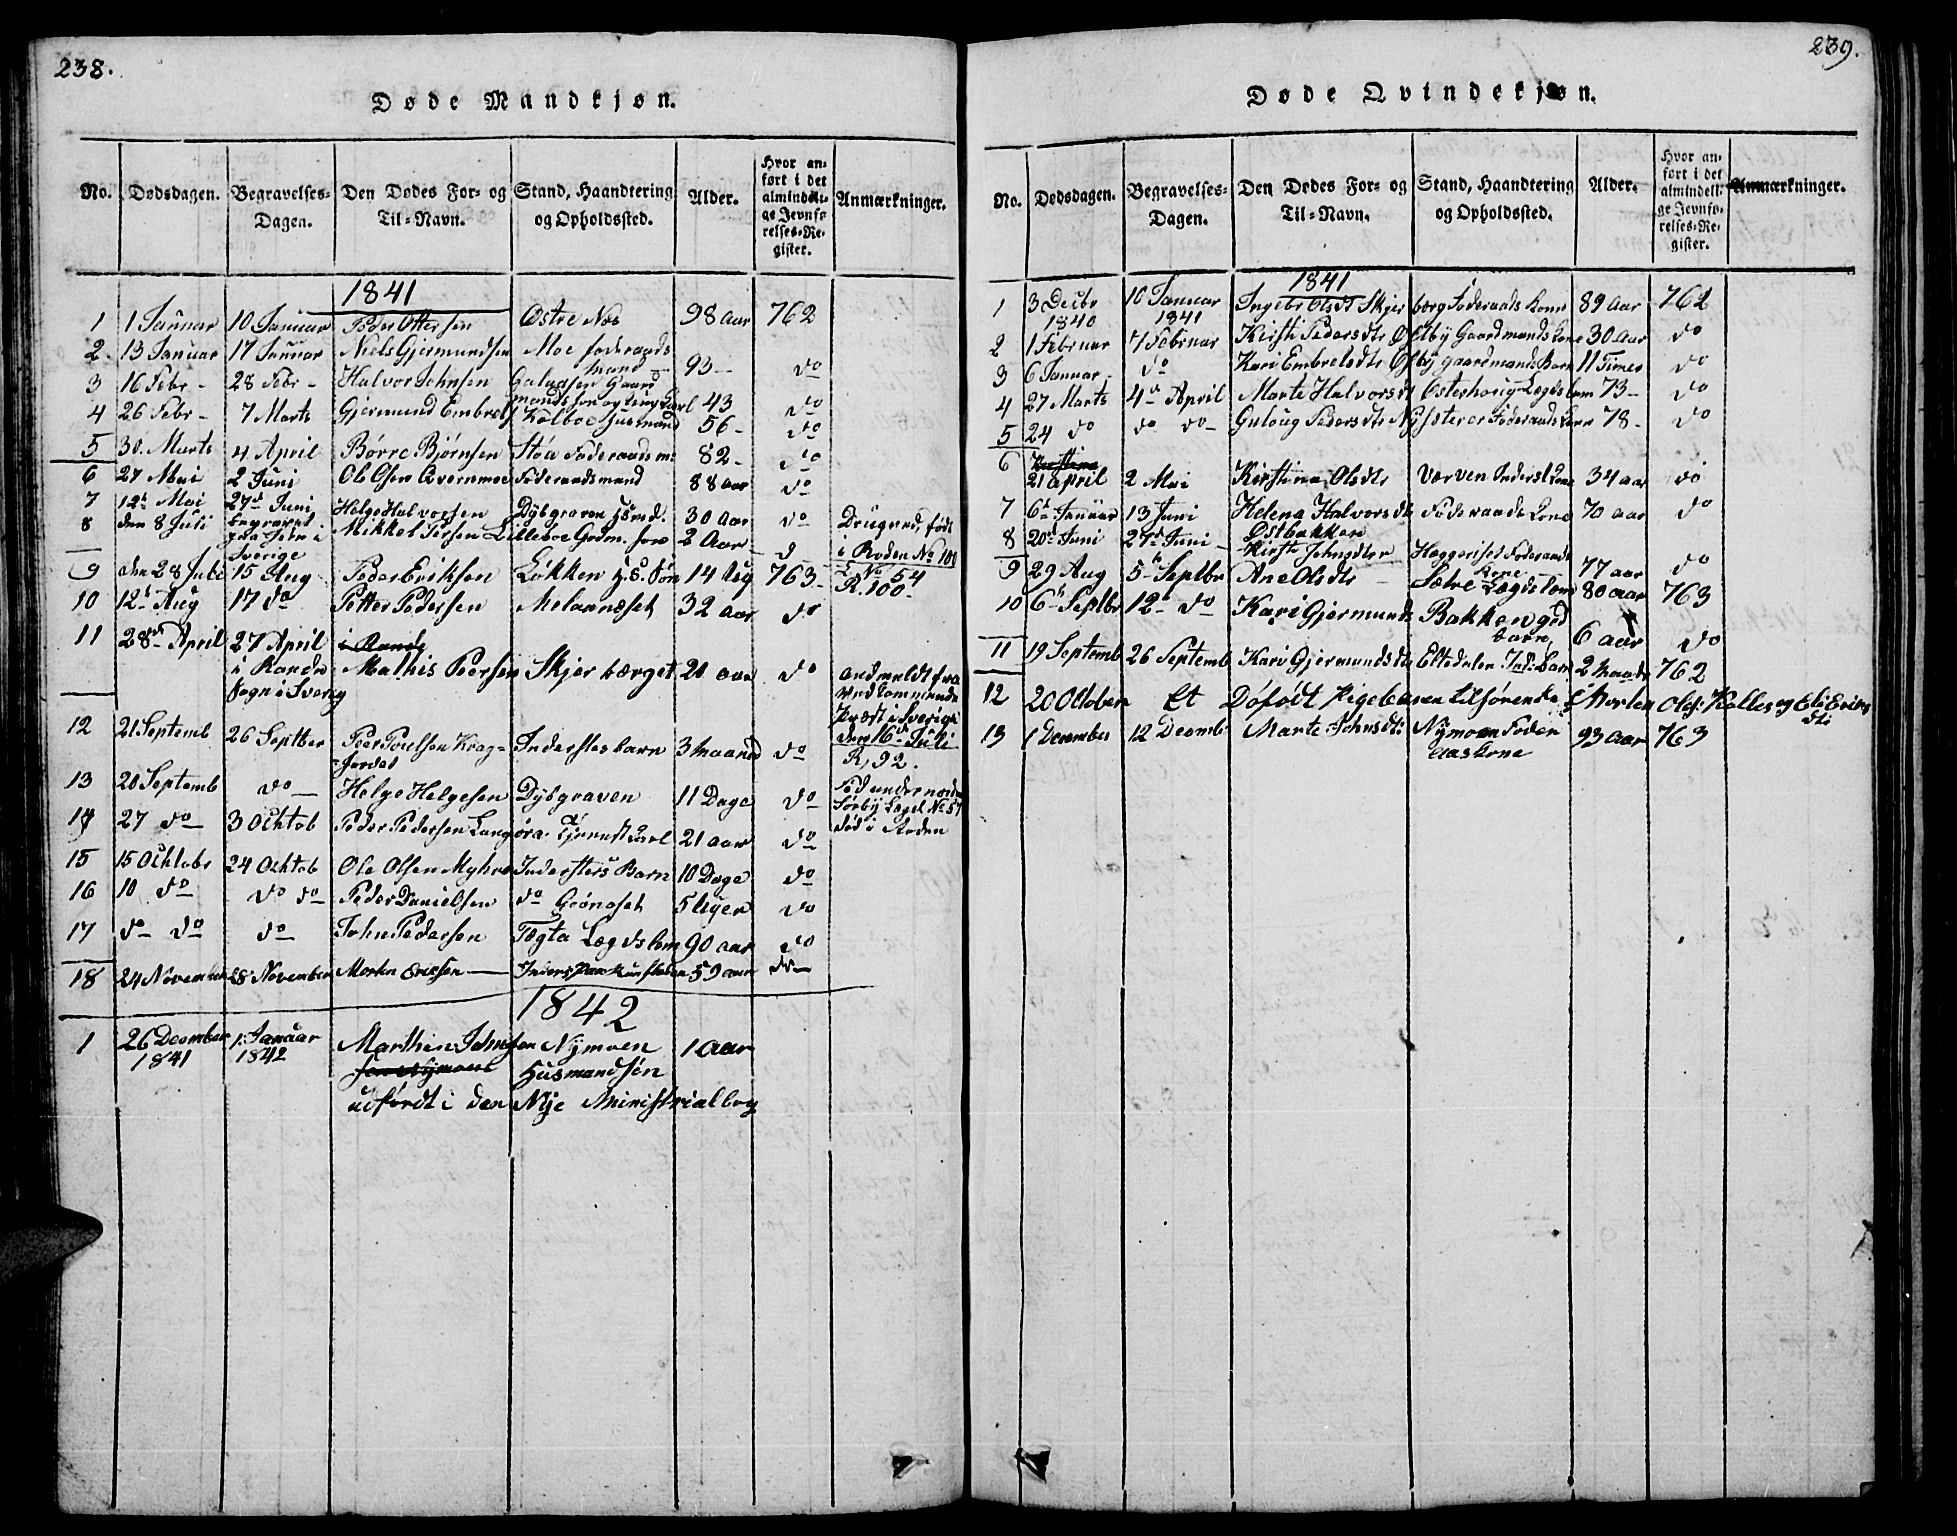 238.
Døde Mandkjøn.
No. Dødsdagen. Begravelses-Dagen. Den Dødes For- og Til-Navn. Stand, Haandtering og Opholdssted. Alder. Hvor anført i det almindelige Jevnførelses-Register. Anmærkninger.
1841
1 1 Januar 10 Januar Peder Ottersen Østre Noe 98 aar 762
2 13 Januar 17 Januar Niels Gjermundsen Moe føderaads
mand 93 do
3 16 Febr - 28 Febr - Halvor Johnsen Galaasen Gaard
mandssøn og ung Karl 43 do
4 26 Febr - 7 Marts Gjermund Embrets Kolboe Husmand 56 - do
5 30. Marts 4 April Børre Bjørnsen Støa Føderaadsm: 82 - do
6 27 Mai 2 Juni Ole Olsen Qvernmoe Føderaadsmand 88 aar do
7 12t Mai 27d Juni Helge Halvorsen Dybgraven Hsmd. 30 Aar do Drugned, født
8 den 8 Juli begravet Mikkel Persen Lilleboe Grdm. søn 2 Aar d i Roden No 100
paa Sitre i
Sverige
9 den 28 Juli 15 Aug Peder Eriksen Løkken H.S. Søn 14 Ug 763 No 54
10 12t Aug 17 do Petter Pedersen Melaanæset 32 aar do R. 100
11 28de April 27 April
i Rande Mathis Peersen Skjærbærget 21 aar do andmeldt fra
Sogn i Sverig vedkommende
Præst i Sverige
den 16d Juli
R, 92.
12 21 Septemb 26 Septber Peer Poulsen Kragfordet Inderstes barn 3 Maaned do
13 20 Septemb do Helge Helgesen Dybgraven 11 Dage do Fød under
Sørby Lægd No 57
14 27 do 3 Ochtob Peder Pedersen Langøra Tjenestkarl 21 aar do død i Roden
15 15 Ochtobr 24 Ochtob Ole Olsen Myhre Indersters Barn 10 Dage do
16 10 do do do Peder Danielsen do Grønoset 5 Uger do
17 do do do John Pedersen Tægta Lægdslem 90 aar do
18 24 November 28 November Morten Eriksen 59 aar do
1842
1 26 Decmber 1. Januar Marthin Johnsen Nymoen 1 aar
1841 1842 Husmandsøn
udførdt i den Nye Ministrialbog
239.
Døde Qvindekjøn.
No. Dødsdagen. Begravelses-Dagen. Den Dødes For- og Til-Navn. Stand, Haandtering og Opholdssted. Alder. Hvor anført i det almindelige Jevnførelses-Register. Anmærkninger.
1841
1 3 Decbr 10 Januar Ingebr Olsdt Skjærbærg Føderaads Kone 89 Aar 762
1840 1841
2 1 Februar 7 Februar Kirsti Pedersdtr Øfelby Gaardmands Kone 30 aar do
3 6 Januar - do Kari Embretsdtr Øfby gaardmands Barn 11 Timer do
4 27 Marts 4de April Marte Halvorsdt Østerhoug Lægdslem 73 - do
5 24 do do do - Guloug Pedersdtr Nysæteren Føderaads Kone 78 - do
6 Kirstina
21 april 2 Mai Kirstina Olsdtr Værven Inderst Kone 34 aar do
7 6t Januar 13 Juni Helena Halvorsdt Føderaads Kone 70 aar do
Østbakken
8 20d Juni 27d Juni - Kirsti Johnsdter Hæggeriset Føderaads
Kone 77 aar do
9 29 Aug 5t Septbr Ane Olsdtr Sætre Lægdslem 80 aar 763
10 6t Septbr 12t do Kari Gjermunds Bakken grd
barn, 6 aar do
11 19 Septemb 26 Septemb Kari Gjermundsdtr Eltedalen Ind: Barn 2 maadr 762
12 20 Octobern Et Døfødt Pigebarn tilførende Morten Oles: Kolles og Eli Eriks
dt:
13 1 December 12 Decmb Marte Johnsdt: Nymoen Føder
aaskone 93 aar 763